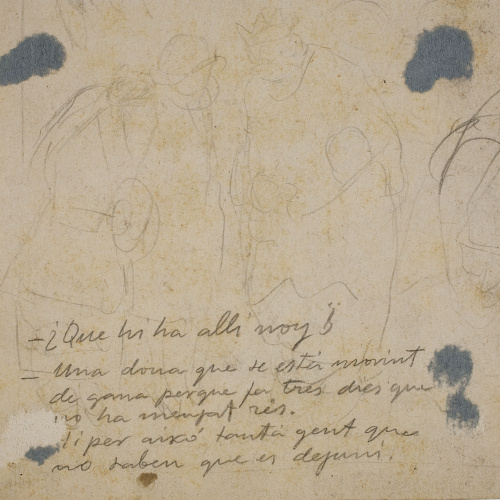 - ¿Que hi ha allí noy?
- Una dona que se está morint
de gana perque fa tres dies que
no ha menjat rés.
I per aixó tanta gent que
no saben que es dejuni.